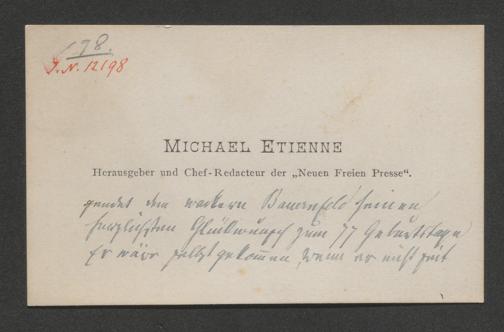 78.
I.N. 12198
MICHAEL ETIENNE
Herausgeber und Chef-Redacteur der „Neuen Freien Presse“.
sendet dem wackern Bauernfeld seinen
herzlichsten Glückwunsch zum 77 Geburtstage
Er wäre selbst gekommen, wenn er nicht seit